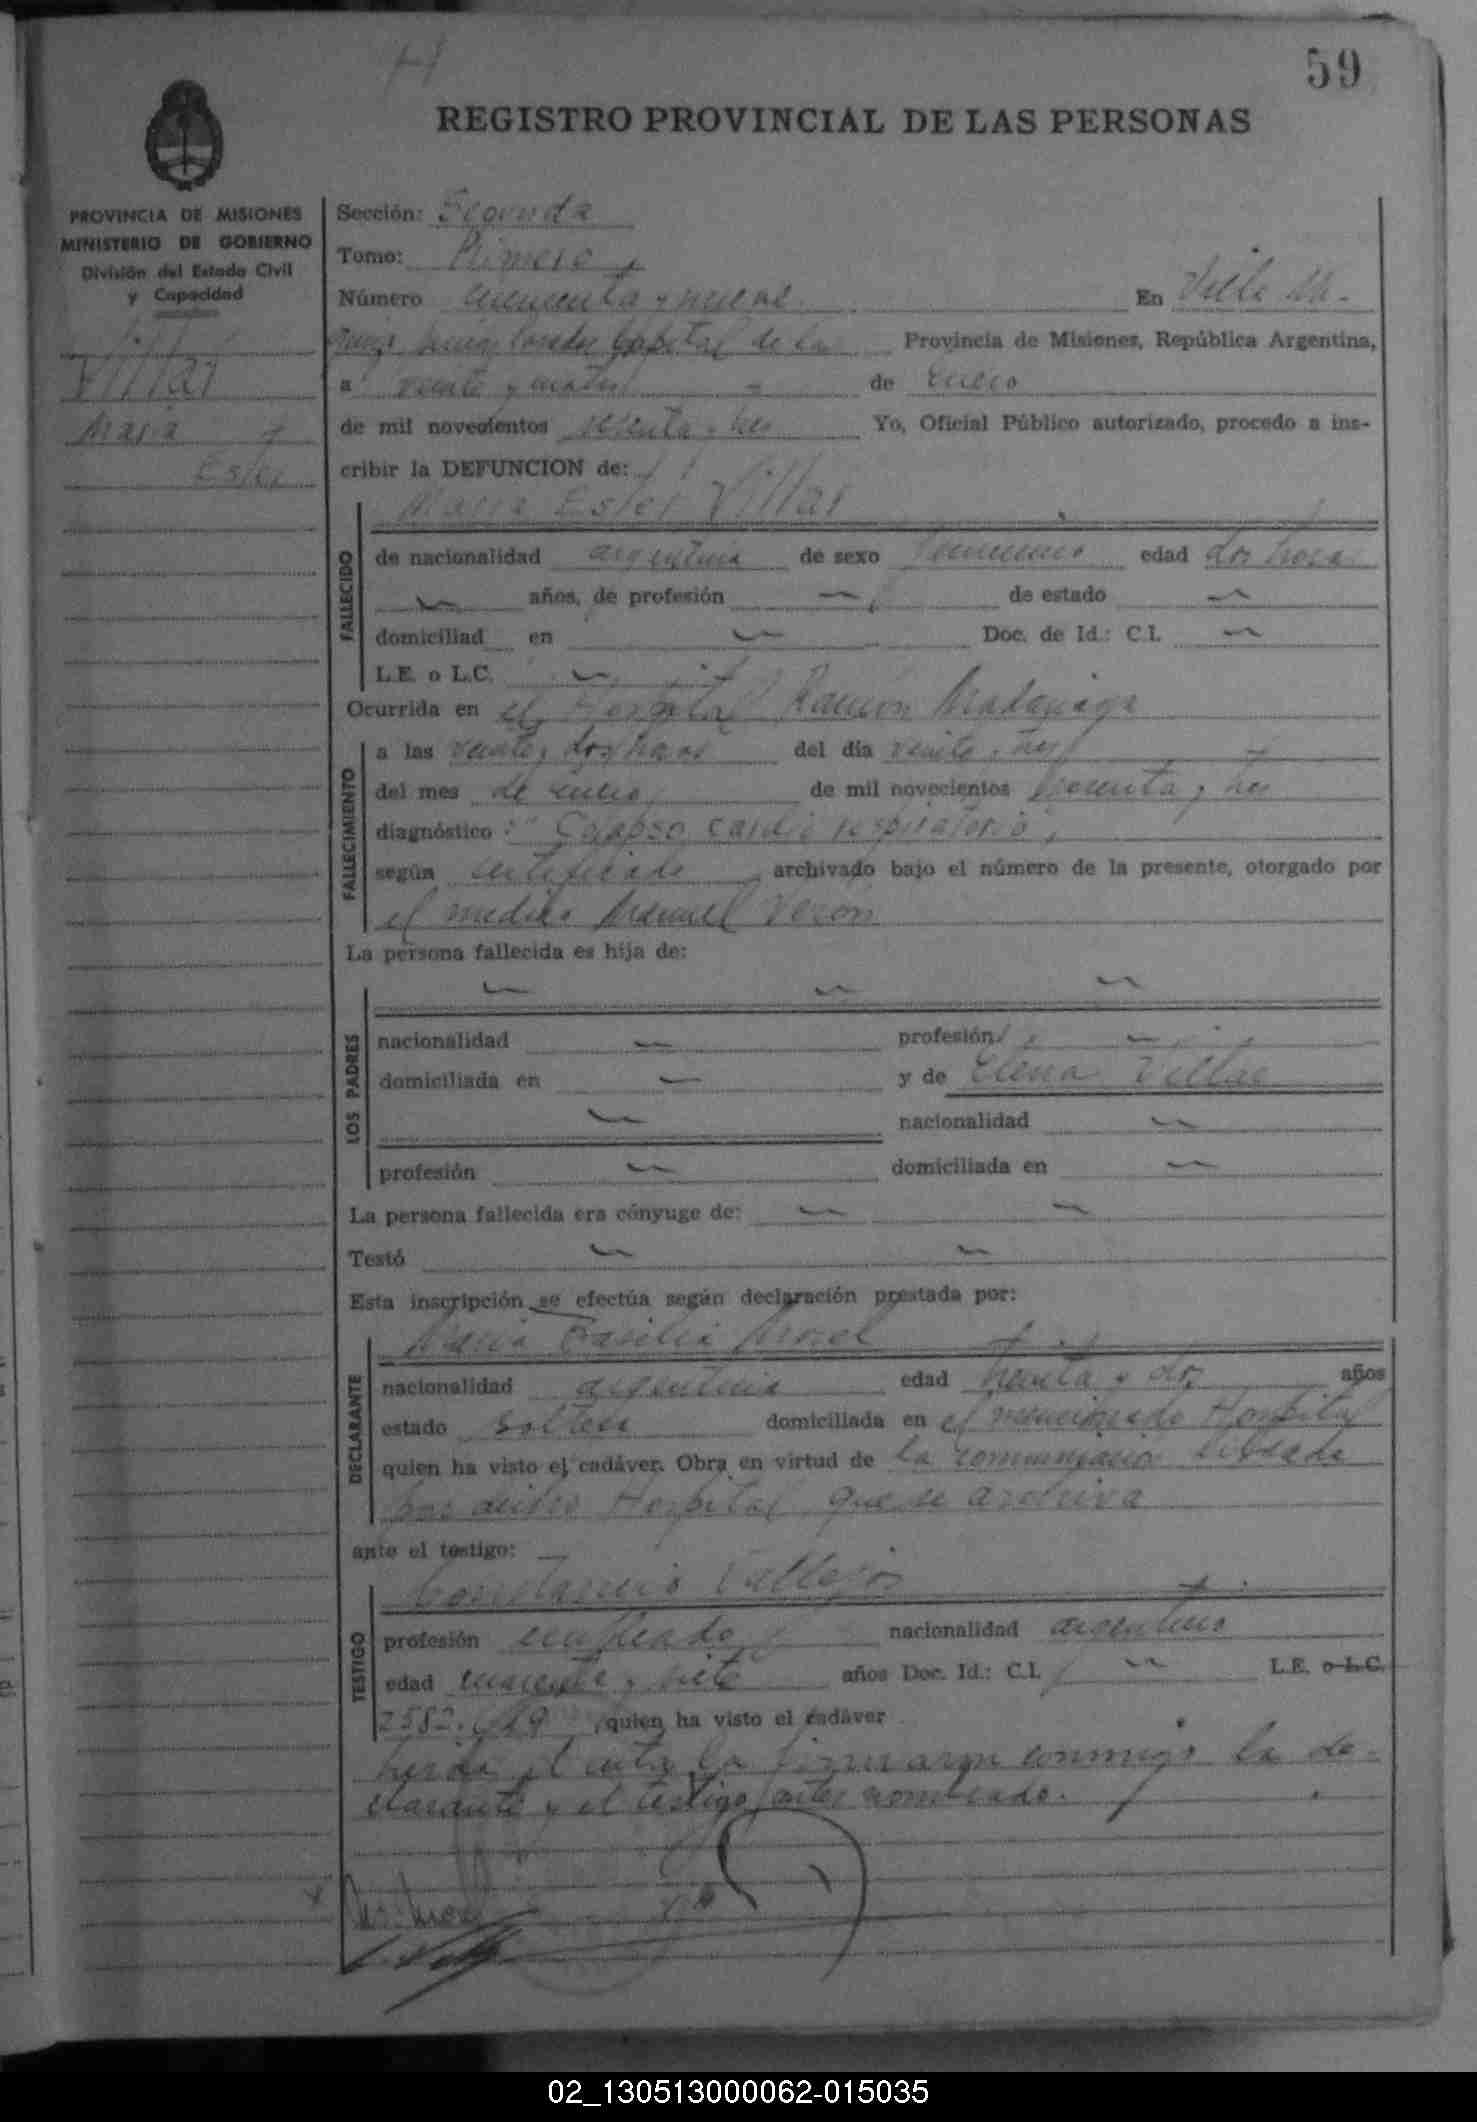 59
REGISTRO PROVINCIAL DE LAS PERSONAS
PROVINCIA DE MISIONES
MINISTERIO DE GOBIERNO
División del Estado Civil
y Capacidad
Villar
María
Ester
Sección: Segunda
Tomo: Primero
Número cincuenta y nueve En Villa
Capital de la Provincia de Misiones, República Argentina,
a veinte y cuatro de Enero
de mil novecientos sesenta y tres Yo, Oficial Público autorizado, procedo a ins-
cribir la DEFUNCION de:
María Ester Villar
FALLECIDO
de nacionalidad argentina de sexo femenino edad dos horas
años, de profesión de estado
domiciliad en Doc. de Id.: C.I.
L.E. o L.C.
Ocurrida en el Hospital Ramón Madariaga
FALLECIMIENTO
a las veinte y dos horas del día veinte y tres
del mes de enero de mil novecientos sesenta y tres
diagnóstico: "Colapso cardio respiratorio"
según certificado archivado bajo el número de la presente, otorgado por
el médico Manuel Verón
La persona fallecida es hija de:
LOS PADRES
nacionalidad profesión
domiciliada en y de Elena Villar
nacionalidad
profesión domiciliada en
La persona fallecida era cónyuge de:
Testó
Esta inscripción se efectúa según declaración prestada por:
María Basilia Morel
DECLARANTE
nacionalidad argentina edad treinta y dos años
estado soltera domiciliada en el mencionado Hospital
quien ha visto el cadáver. Obra en virtud de la comunicación librada
por dicho Hospital que se archiva
ante el testigo:
Constancio Vallejos
TESTIGO
profesión empleado nacionalidad argentino
edad cuarenta y siete años Doc. Id.: C.I. L.E. o L.C.
2582. quien ha visto el cadáver
leída el acta la firmaron conmigo la de-
clarante y el testigo antes nombrado.
02_130513000062-015035